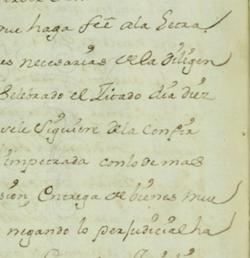 que haga feé ala Letra
es necesarias de la diligen
Selebrado el Citado dia diez
vele Siguiere de la Confir
impetrada conlo demas
sion, Entrega de bienes mue
negando lo perjudicial ha